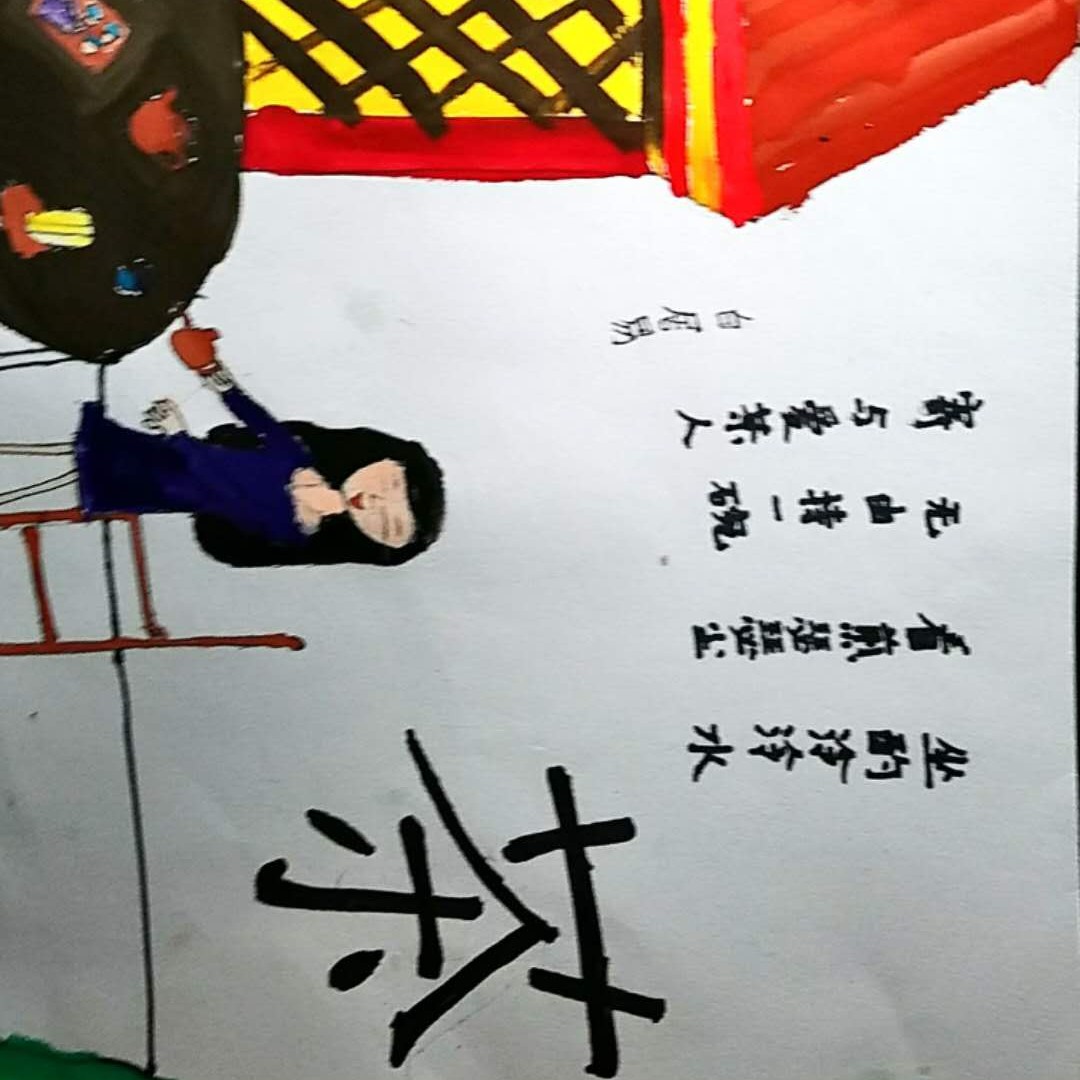 茶
坐酌泠泠水
看煎瑟瑟尘
无由持一碗
寄与爱茶人
白居易